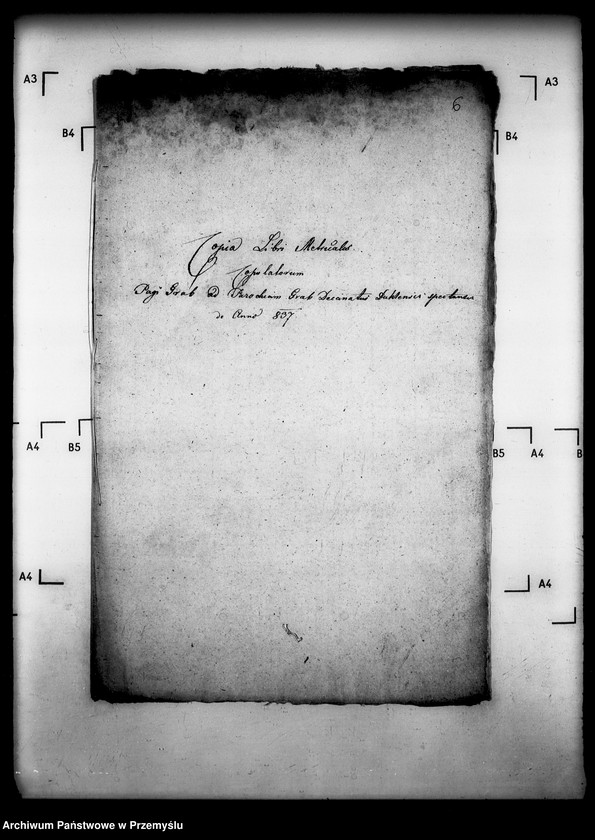 A3
A3
6
B4
B4
Copia Libri Metricales
Copulatorum
Pagi Grab ad Parochiam Grab Decanatus Duklensis spectantis
de Anno 837
A4
B5
B5
A4
B
A4
A4
Archiwum Państwowe w Przemyślu